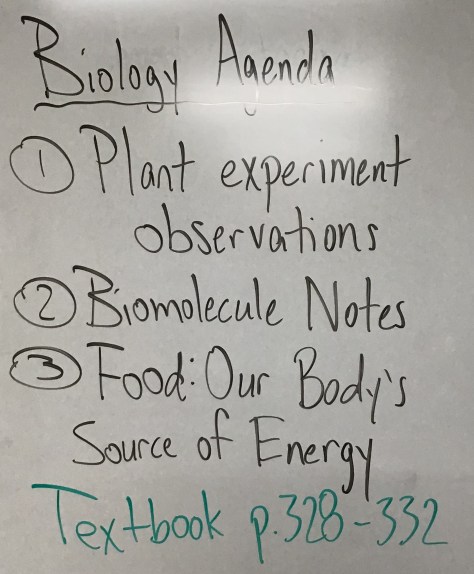 Biology Agenda
① Plant experiment
observations
② Biomolecule Notes
③ Food: Our Body's
Source of Energy
Textbook p.328-332